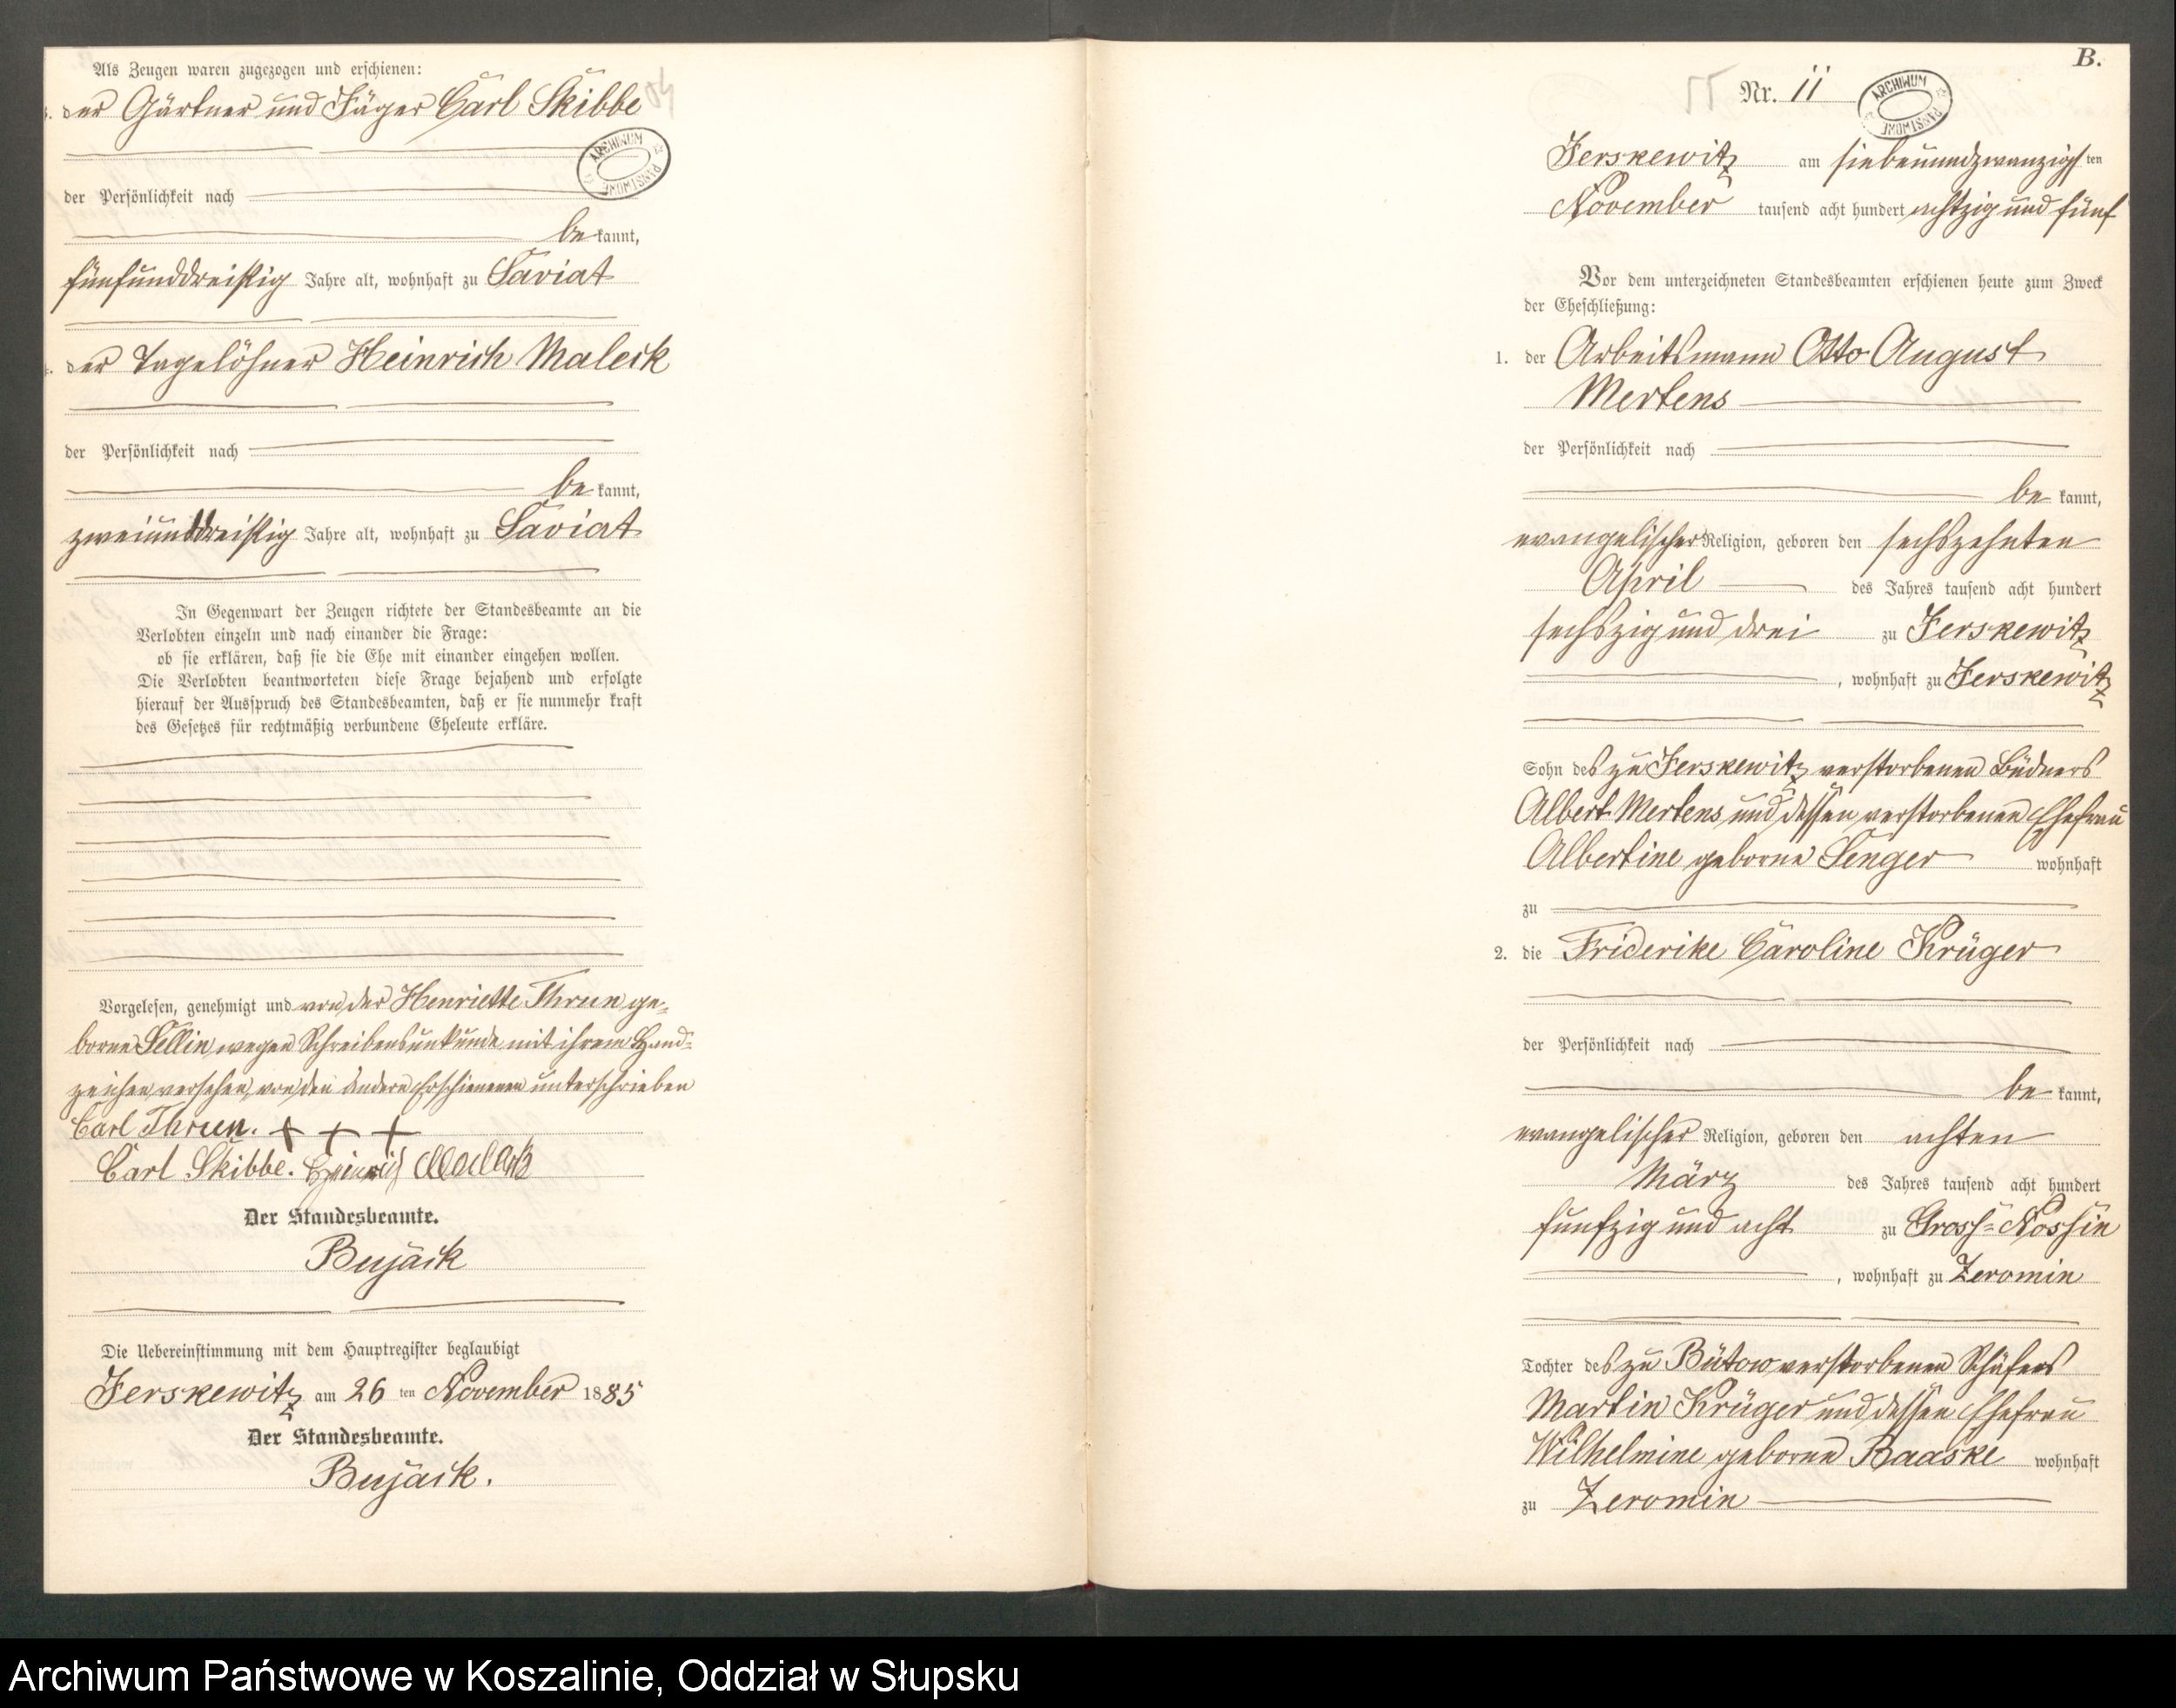 Als Zeugen waren zugezogen und erschienen:
3. der Gärtner und Jäger Carl Skibbe
der Persönlichkeit nach
be kannt,
fünfunddreißig Jahre alt, wohnhaft zu Saviat
4. der Tagelöhner Heinrich Maleck
der Persönlichkeit nach
be kannt,
zweiunddreißig Jahre alt, wohnhaft zu Saviat
In Gegenwart der Zeugen richtete der Standesbeamte an die
Verlobten einzeln und nach einander die Frage:
ob sie erklären, daß sie die Ehe mit einander eingehen wollen.
Die Verlobten beantworteten diese Frage bejahend und erfolgte
hierauf der Ausspruch des Standesbeamten, daß er sie nunmehr kraft
des Gesetzes für rechtmäßig verbundene Eheleute erkläre.
Vorgelesen, genehmigt und von der Henriette Thrun ge-
borne Sellin wegen Schreibensunkunde mit ihrem Hand-
zeichen versehen, von den andern Erschienenen unterschrieben
Carl Thrun. + + +
Carl Skibbe. Heinrich Maleck
Der Standesbeamte.
Bujack
Die Uebereinstimmung mit dem Hauptregister beglaubigt
Jerskewitz am 26 ten November 1885
Der Standesbeamte.
Bujack.
B.
55 Nr. 11
ARCHIWUM PAŃSTWOWE
Jerskewitz am siebenundzwanzigsten
November tausend acht hundert achtzig und fünf
Vor dem unterzeichneten Standesbeamten erschienen heute zum Zweck
der Eheschließung:
1. der Arbeitsmann Otto August
Mertens
der Persönlichkeit nach
be kannt,
evangelischer Religion, geboren den sechszehnten
April des Jahres tausend acht hundert
sechszig und drei zu Jerskewitz
, wohnhaft zu Jerskewitz
Sohn des zu Jerskewitz verstorbenen Büdners
Albert Mertens und dessen verstorbenen Ehefrau
Albertine geborne Senger wohnhaft
zu
2. die Friderike Caroline Krüger
der Persönlichkeit nach
be kannt,
evangelischer Religion, geboren den achten
März des Jahres tausend acht hundert
funfzig und acht zu Gross-Nossin
, wohnhaft zu Zeromin
Tochter des zu Bütow verstorbenen Schäfers
Martin Krüger und dessen Ehefrau
Wilhelmine geborne Baaske wohnhaft
zu Zeromin
Archiwum Państwowe w Koszalinie, Oddział w Słupsku